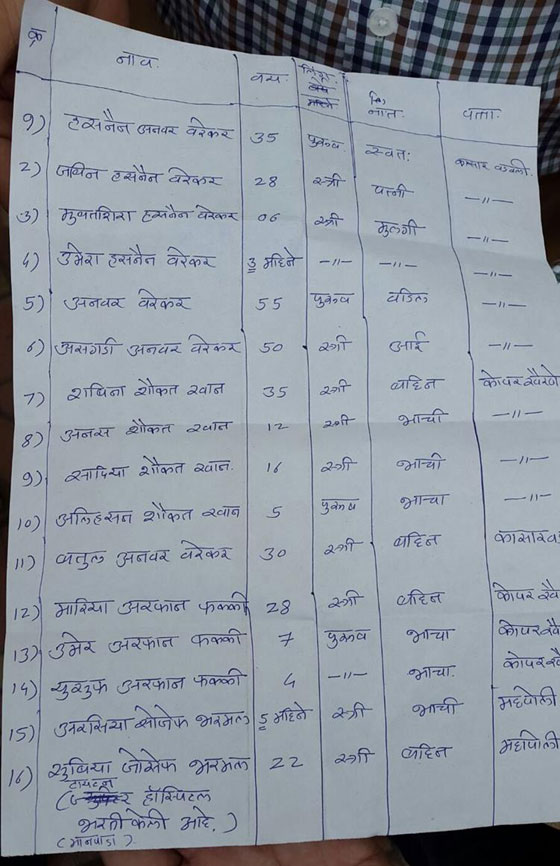 क्र नाव. वय. लिंग नात. पत्ता.
१) हसनैन अनवर वरेकर 35 पुरूष स्वतः कासार वडवली.
2) जबिन हसनैन वरेकर 28 स्त्री पत्नी —॥—
3) मुबतशिरा हसनैन वरेकर 06 स्त्री मुलगी —॥—
4) उमेरा हसनैन वरेकर 3 महिने —॥— —॥— —॥—
5) अनवर वरेकर 55 पुरूष वडिल —॥—
6) असगडी अनवर वरेकर 50 स्त्री आई —॥—
7) शबिना शौकत खान 35 स्त्री बहिन कोपर खैरणे
8) अनस शौकत खान 12 स्त्री भाची —॥—
9) सादिया शौकत खान. 16 स्त्री भाची —॥—
10) अलिहसन शौकत खान 5 पुरूष भाचा —॥—
11) बतुल अनवर वरेकर 30 स्त्री बहिन कासारव
12) मारिया अरफान फक्की 28 स्त्री बहिन कोपर खै
13) उमेर अरफान फक्की 7 पुरूष भाचा कोपर खै
14) युसुफ अरफान फक्की 4 —॥— भाचा. कोपर खै
15) अरसिया सोजेफ भरमल 5 महिने स्त्री भाची महापोली
16) सुबिया जोसेफ भरमल 22 स्त्री बहिन महापोली
(टायटन हॉस्पिटल
भरती केली आहे.)
(मानपाडा).